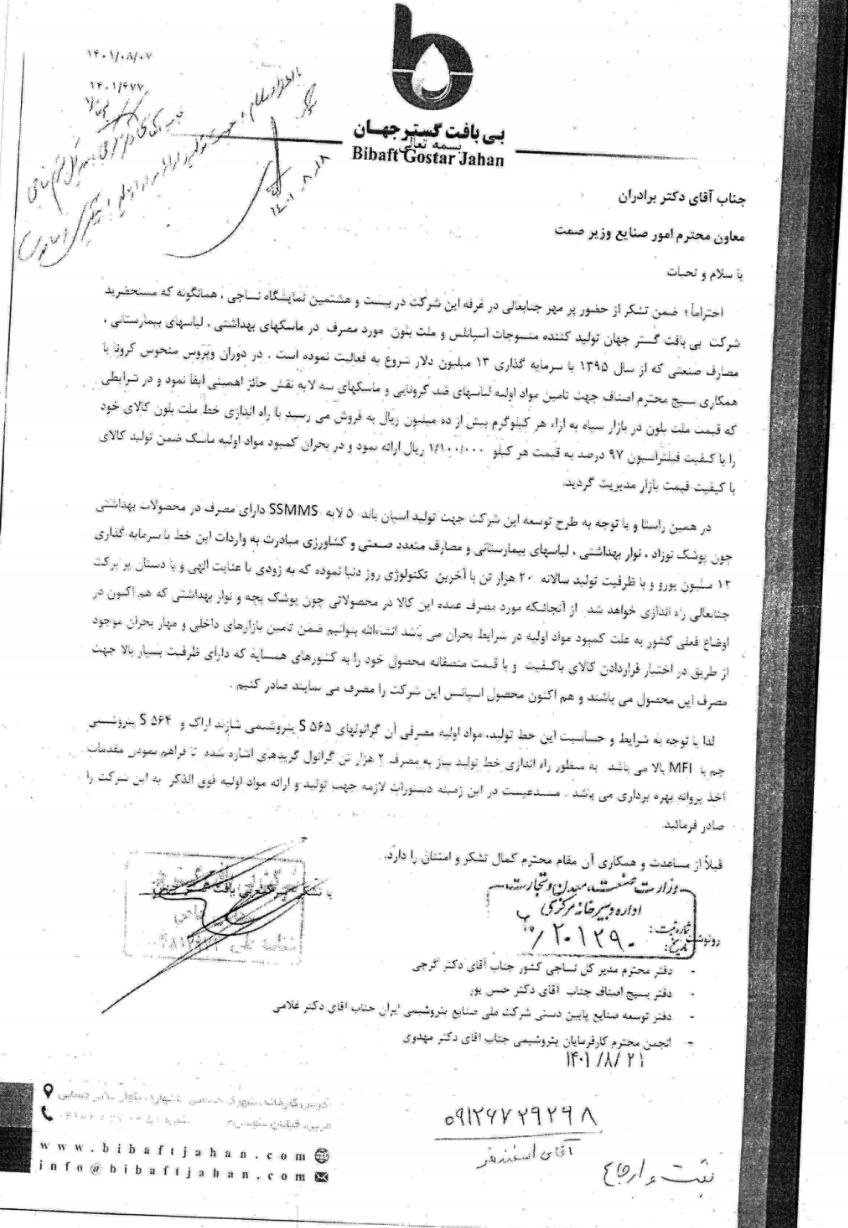 ۱۴۰۱/۰۸/۰۷
۱۴۰۱/۴۷۷
بی بافت گستر جهان
بسمه تعالی
Bibaft Gostar Jahan
۱۴۰۱-۸-۱۸
جناب آقای دکتر برادران
معاون محترم امور صنایع وزیر صمت
با سلام و تحیات
احتراماً؛ ضمن تشکر از حضور پر مهر جنابعالی در غرفه این شرکت در بیست و هشتمین نمایشگاه نساجی ، همانگونه که مستحضرید
شرکت بی بافت گستر جهان تولید کننده منسوجات اسپانلس و ملت بلون مورد مصرف در ماسکهای بهداشتی ، لباسهای بیمارستانی ،
مصارف صنعتی که از سال ۱۳۹۵ با سرمایه گذاری ۱۳ میلیون دلار شروع به فعالیت نموده است . در دوران ویروس منحوس کرونا با
همکاری بسیج محترم اصناف جهت تامین مواد اولیه لباسهای ضد کرونایی و ماسکهای سه لایه نقش حائز اهمیتی ایفا نمود و در شرایطی
که قیمت ملت بلون در بازار سیاه به ازاء هر کیلوگرم بیش از ده میلیون ریال به فروش می رسید با راه اندازی خط ملت بلون کالای خود
را با کیفیت فیلتراسیون ۹۷ درصد به قیمت هر کیلو ۱/۱۰۰/۰۰۰ ریال ارائه نمود و در بحران کمبود مواد اولیه ماسک ضمن تولید کالای
با کیفیت قیمت بازار مدیریت گردید.
در همین راستا و با توجه به طرح توسعه این شرکت جهت تولید اسپان باند ۵ لایه SSMMS دارای مصرف در محصولات بهداشتی
چون پوشک نوزاد ، نوار بهداشتی ، لباسهای بیمارستانی و مصارف متعدد صنعتی و کشاورزی مبادرت به واردات این خط با سرمایه گذاری
۱۲ میلیون یورو و با ظرفیت تولید سالانه ۲۰ هزار تن با آخرین تکنولوژی روز دنیا نموده که به زودی با عنایت الهی و با دستان پر برکت
جنابعالی راه اندازی خواهد شد . از آنجائیکه مورد مصرف عمده این کالا در محصولاتی چون پوشک بچه و نوار بهداشتی که هم اکنون در
اوضاع فعلی کشور به علت کمبود مواد اولیه در شرایط بحران می باشد انشاءالله بتوانیم ضمن تامین بازارهای داخلی و مهار بحران موجود
از طریق در اختیار قراردادن کالای باکیفیت و با قیمت منصفانه محصول خود را به کشورهای همسایه که دارای ظرفیت بسیار بالا جهت
مصرف این محصول می باشند و هم اکنون محصول اسپانلس این شرکت را مصرف می نمایند صادر کنیم .
لذا با توجه به شرایط و حساسیت این خط تولید، مواد اولیه مصرفی آن گرانولهای S ۵۶۵ پتروشیمی شازند اراک و S ۵۶۴ پتروشیمی
جم با MFI بالا می باشد به منظور راه اندازی خط تولید نیاز به مصرف ۲ هزار تن گرانول گریدهای اشاره شده تا فراهم نمودن مقدمات
اخذ پروانه بهره برداری می باشد . مستدعیست در این زمینه دستورات لازمه جهت تولید و ارائه مواد اولیه فوق الذکر به این شرکت را
صادر فرمائید.
قبلاً از مساعدت و همکاری آن مقام محترم کمال تشکر و امتنان را دارد.
با تشکر
وزارت صنعت، معدن و تجارت
اداره دبیرخانه مرکزی
شماره ثبت: ۲۰۱۲۹۰
تاریخ:
رونوشت
- دفتر محترم مدیر کل نساجی کشور جناب آقای دکتر گرجی
- دفتر بسیج اصناف جناب آقای دکتر حسن پور
- دفتر توسعه صنایع پایین دستی شرکت ملی صنایع پتروشیمی ایران جناب اقای دکتر غلامی
- انجمن محترم کارفرمایان پتروشیمی جناب اقای دکتر مهدوی
۱۴۰۱/۸/۲۱
۰۹۱۲۶۷۲۹۲۹۸
آقای اسفندفر
ثبت و ارجاع
www.bibaftjahan.com
info@bibaftjahan.com